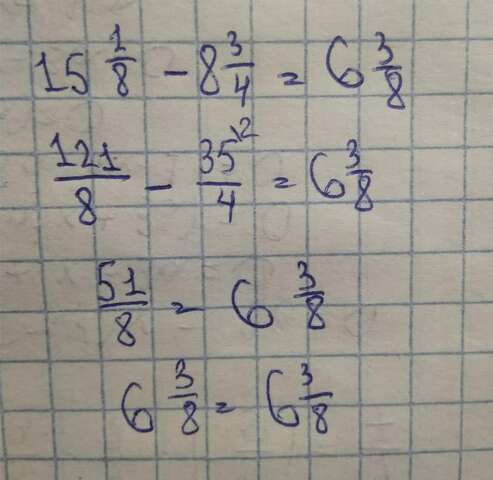 15 1/8 - 8 3/4 = 6 3/8
121/8 - 35\2/4 = 6 3/8
51/8 = 6 3/8
6 3/8 = 6 3/8